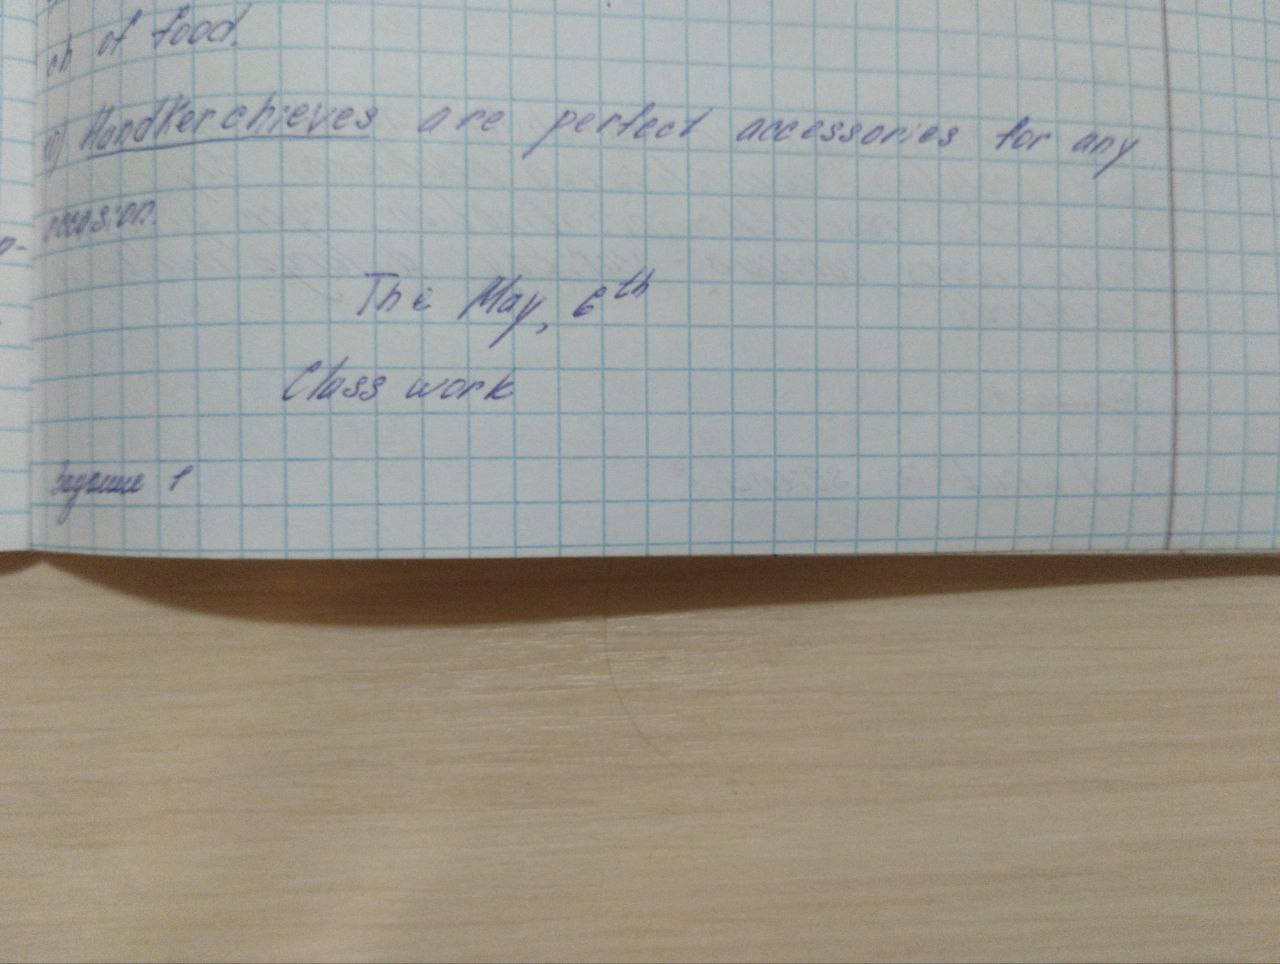 ch of food.
10) Handkerchieves are perfect accessories for any
occasion.
The May, 6th
Class work
Задание 1